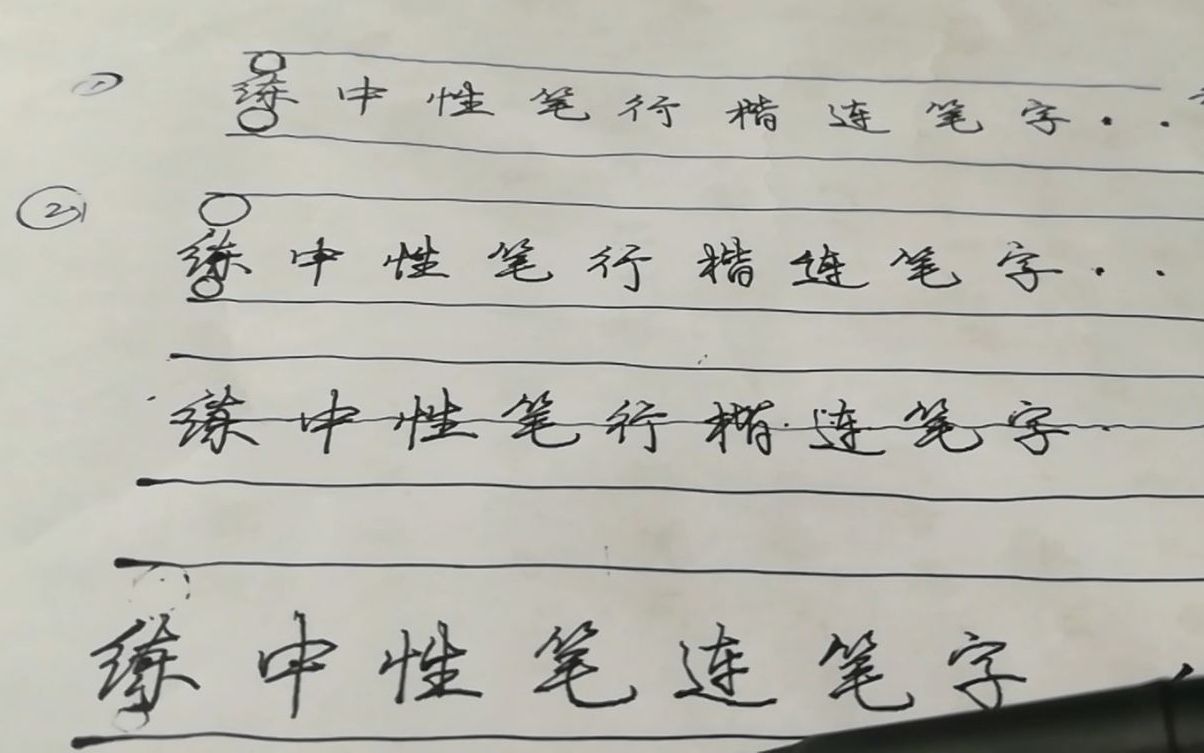 ① 练中性笔行楷连笔字..
② 练中性笔行楷连笔字..
练中性笔行楷连笔字.
练中性笔连笔字